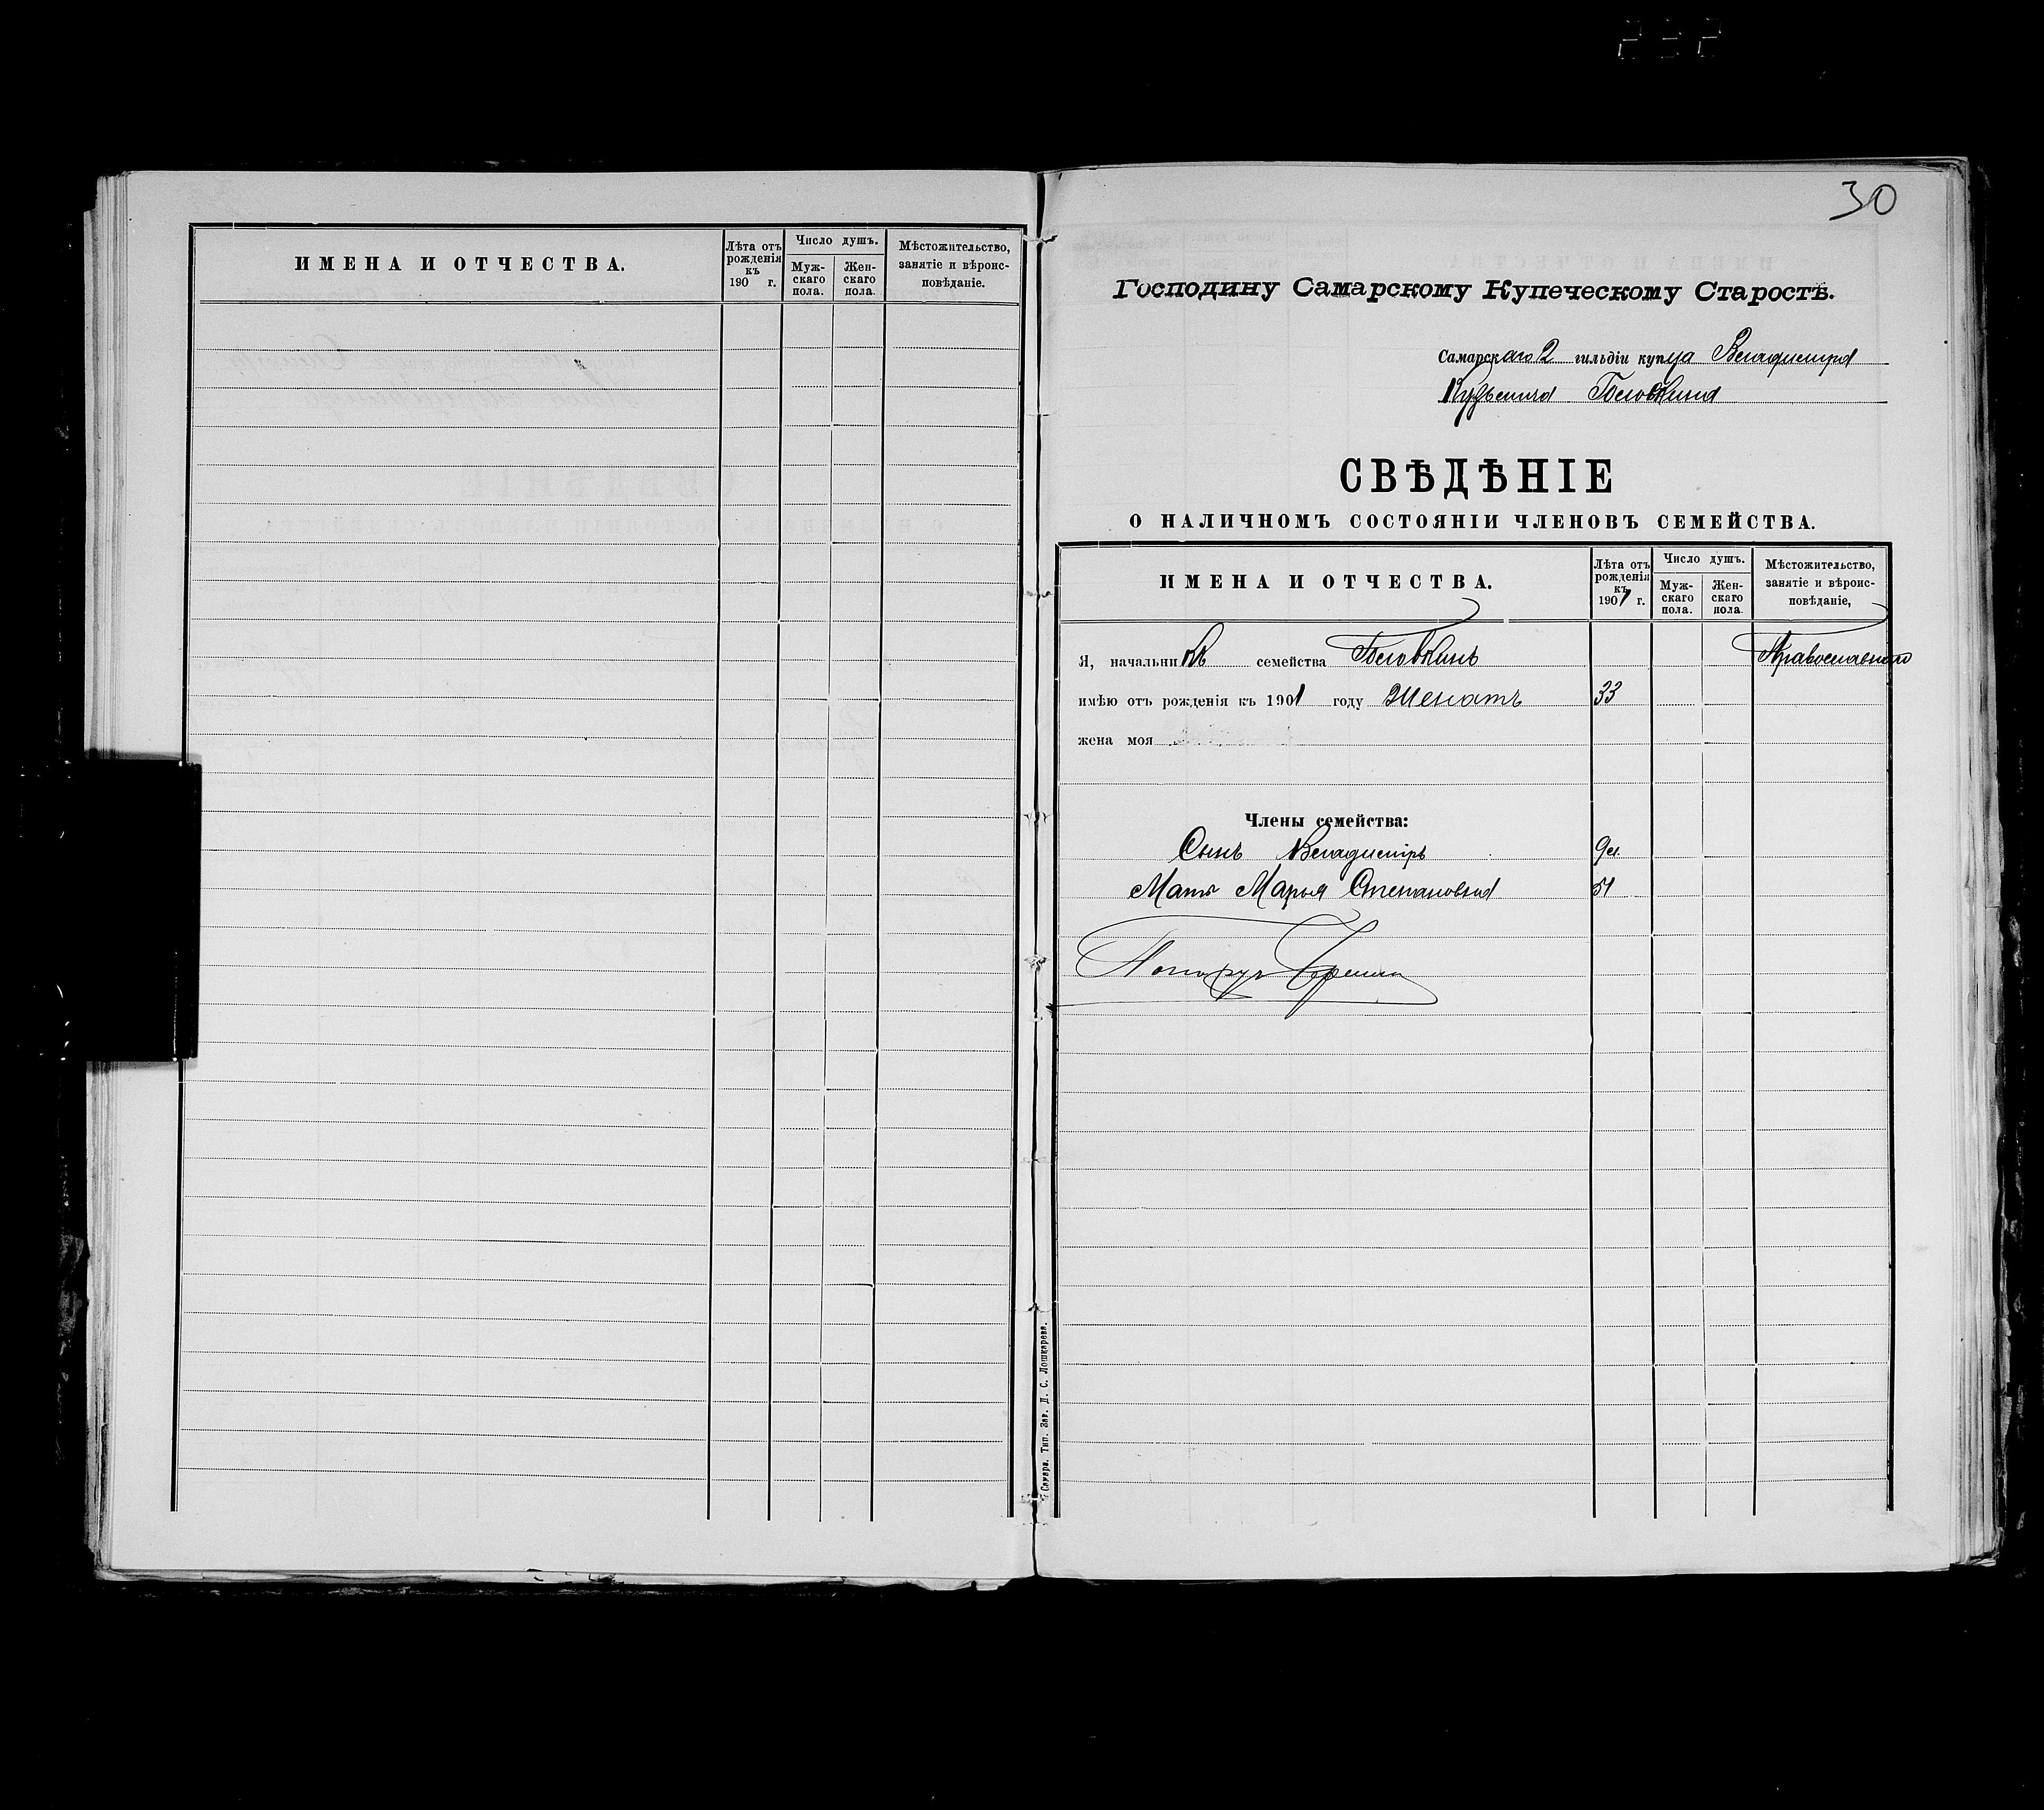 ИМЕНА И ОТЧЕСТВА.
Лѣта отъ рожденія къ 190 г.
Число душъ.
Мужскаго пола.
Женскаго пола.
Мѣстожительство, занятіе и вѣроисповѣданіе.
30
Господину Самарскому Купеческому Старостѣ.
Самарскаго 2 гильдіи купца Владиміра
Кузьмича Головкина
СВѢДѢНІЕ
О НАЛИЧНОМЪ СОСТОЯНІИ ЧЛЕНОВЪ СЕМЕЙСТВА.
ИМЕНА И ОТЧЕСТВА.
Лѣта отъ рожденія къ 1901 г.
Число душъ.
Мужскаго пола.
Женскаго пола.
Мѣстожительство, занятіе и вѣроисповѣданіе,
Я, начальникъ семейства Головкинъ Православнаго
имѣю отъ рожденія къ 1901 году женатъ 33
жена моя
Члены семейства:
Сынъ Владиміръ 9
Мать Марья Степановна 51
Самара. Тип. Зав. Д. С. Лошкарева.